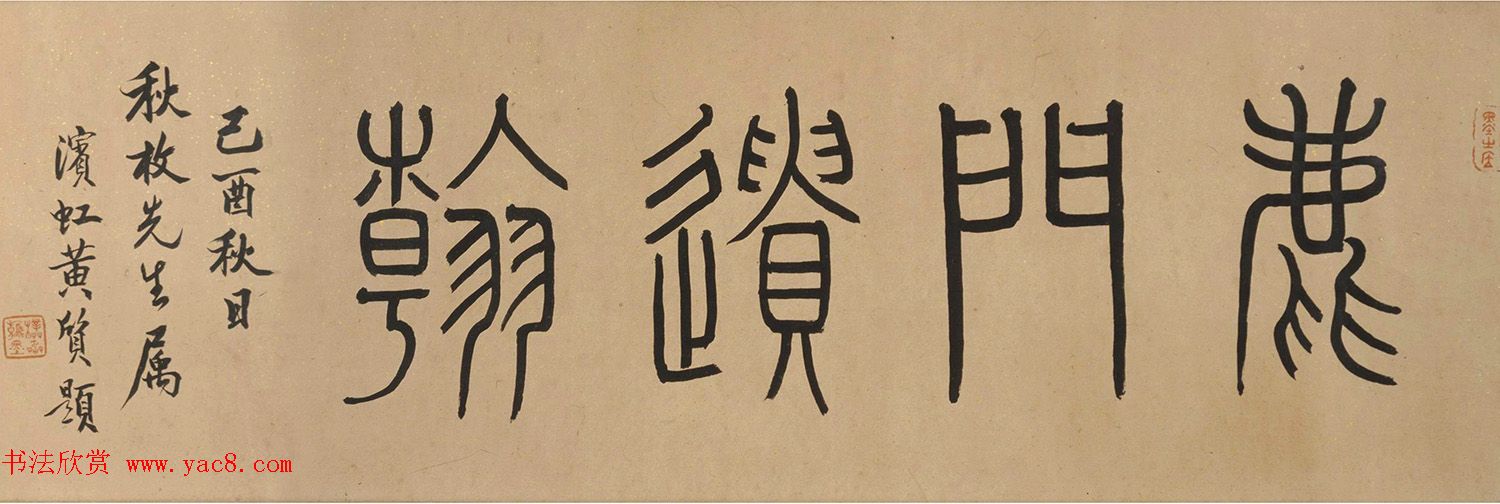 鹿門遺翰
己酉秋日
秋枚先生属
濱虹黄質題
书法欣赏 www.yac8.com